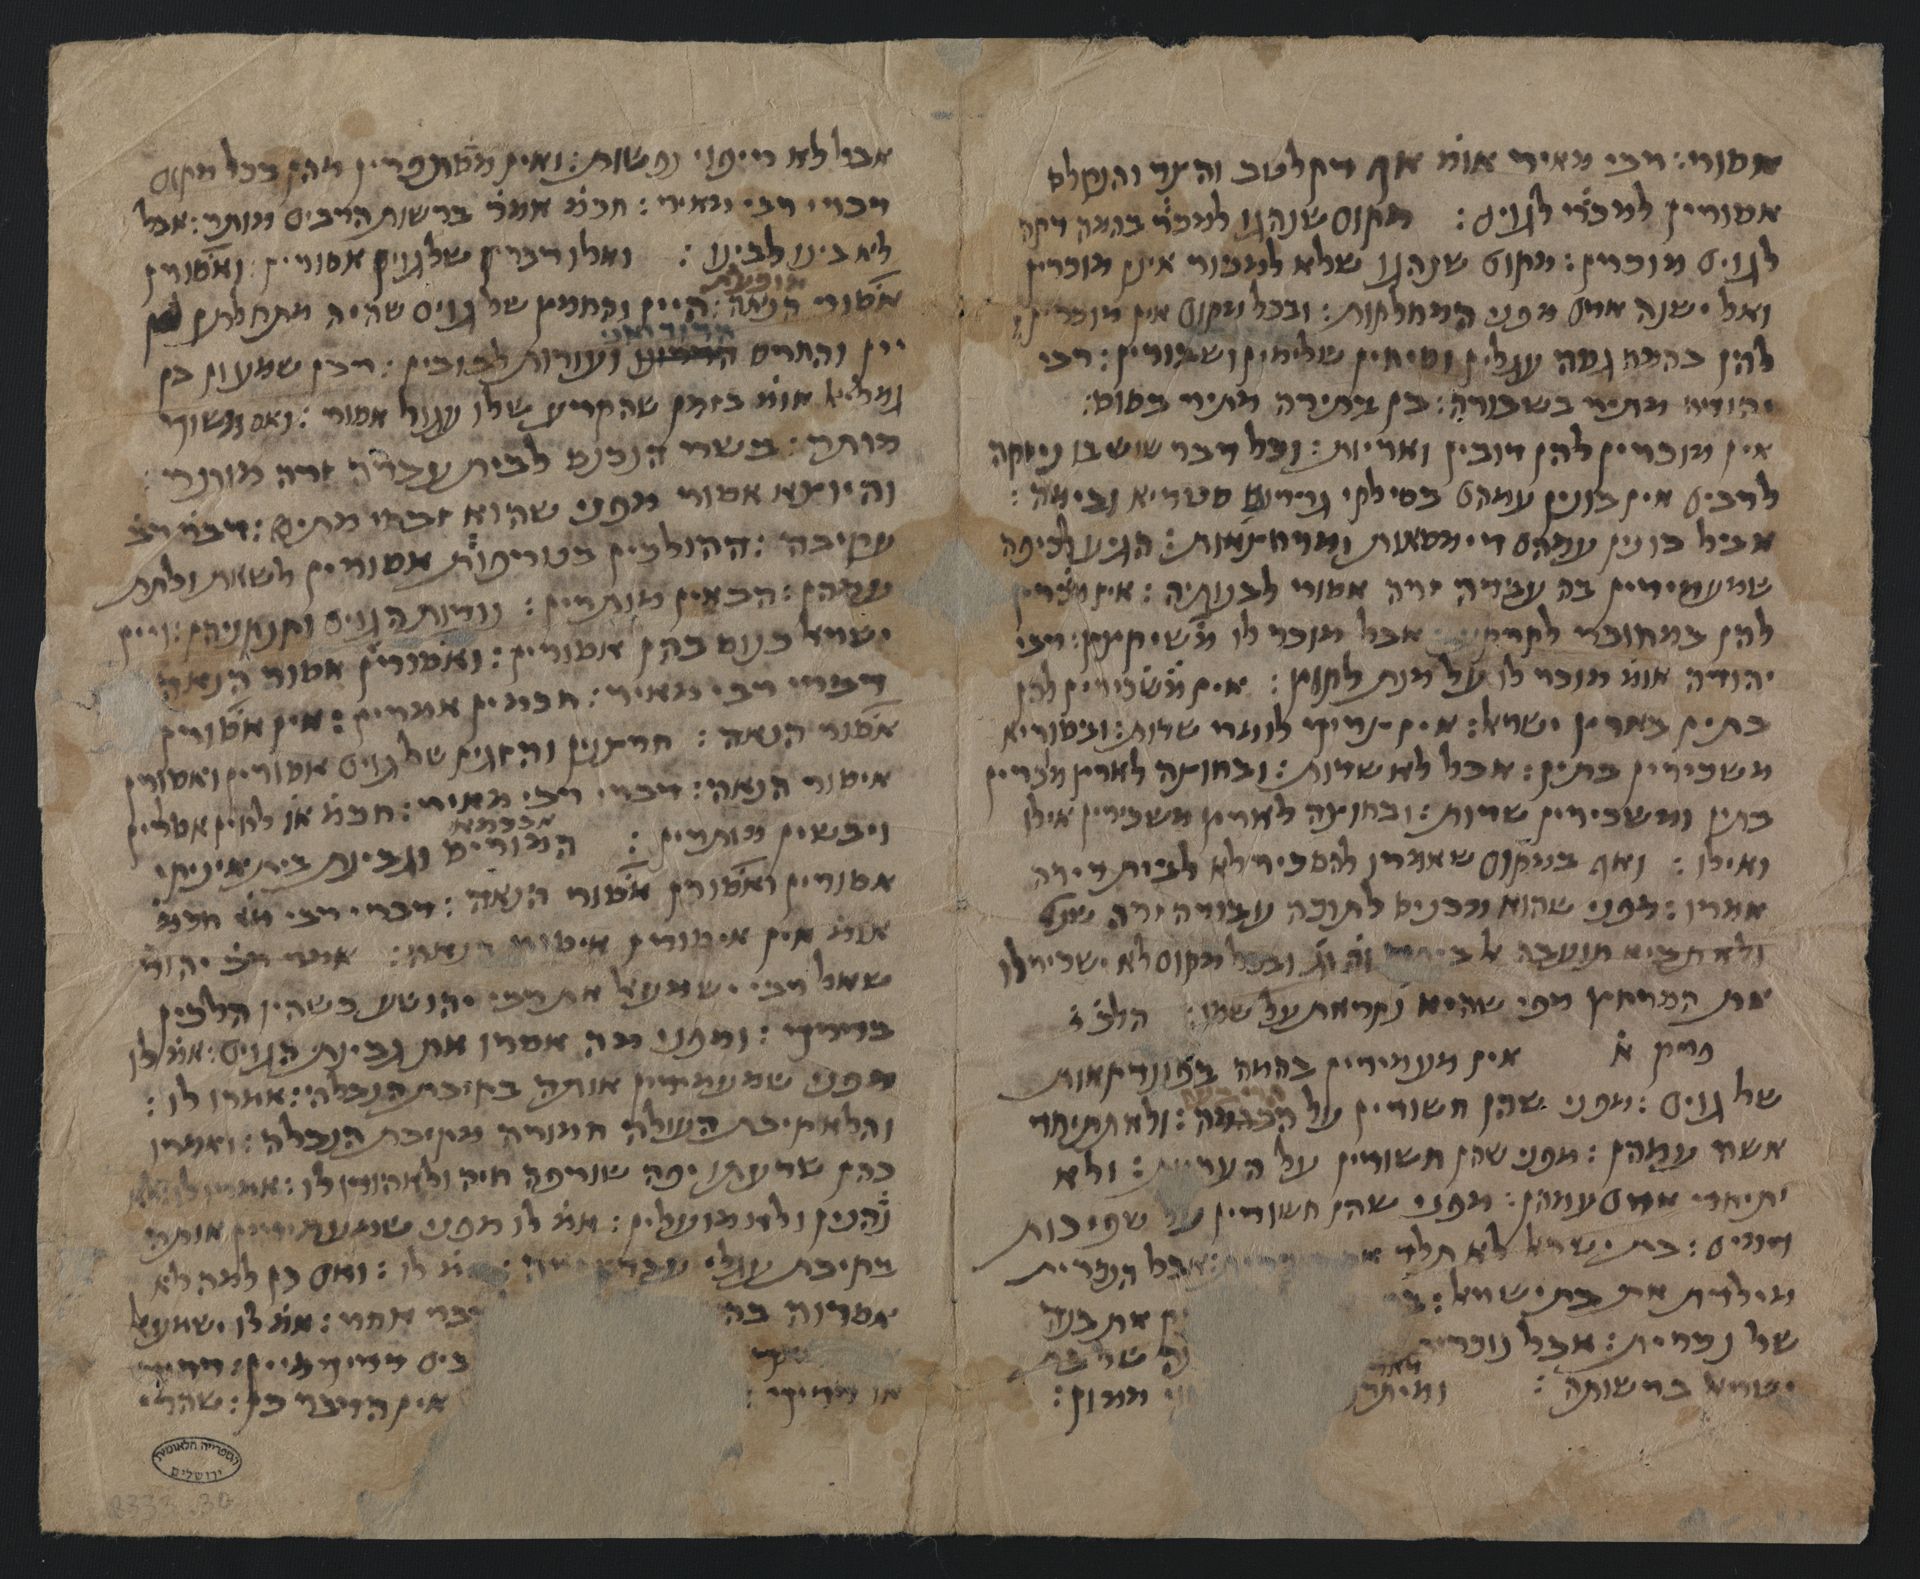 אסור: רבי מאיר אומ׳ אף דקל טב והצר והנקלס
אסורין למכר׳ לגוים: מקום שנהגו למכר׳ בהמה דקה
לגוים מוכרין: מקום שנהגו שלא למכור אינן מוכרין
ואל ישנה אדם מפני המחלקות: ובכל מקום אין מוכרין
להן בהמה גסה עגלין וסיחין שלימין ושבורין: רבי
יהודה מתיר בשבורה: בן בתירה מתיר בסוס:
אין מוכרין להן דובין ואריות: וכל דבר שיש בו ניזקה
לרבים אין בונין עמהם בסילקי גרדום סטריא ובימה:
אביל בונין עמהם דימסאות ומרחצאות: הגיע לכיפה
שמעמידין בה עבדה זרה אסור לבנותיה: אין מכרין
להן במחובר לקרקע אבל מוכר לו משיקצץ: רבי
יהודה אומ׳ מוכר לו על מנת לקוץ: אין משכירין להן
בתים בארץ ישראל: אין צריך לומר שדות: ובסוריא
משכירין בתין: אבל לא שדות: ובחוצה לארץ מכרין
בתין ומשכירין שדות: ובחוצה לארץ משכירין אילו
ואילו: ואף במקום שאמרו להסכיר לא לבית דירה
אמרו: מפני שהוא מכניס לתוכה עבודה זרה שנ׳
ולא תביא תועבה אל ביתך וג׳ ובכל מקום לא ישכיר לו
את המרחץ מפני שהיא נקראת על שמו: הלכ׳
פרק א אין מעמידין בהמה בפונדקאות
של גוים: מפני שהן חשודין על הבהמה: ולא תתיחד
אשה עמהן: מפני שהן חשודין על העריות: ולא
יתיחד אדם עמהן: מפני שהן חשודין על שפיכות
דמים: בת ישראל לא תלד את אבל הנכרית
מילדת את בת ישראל: את בנה
של נכרית: אבל נוכרית של בת
ישראל ברשותה: ממון:
אבל לא ריפוי נפשות: ואין מסתפרין מהן בכל מקום
דברי רבי מאיר: חכמ׳ אמר׳ ברשות הרבים מותר: אבל
לא בינו לבינו: ואלו דברים של גוים אסורין: ואסורין
אסור הנאה: היין והחמץ של גוים שהיה מתחלתן
יין והחרס הדריאני ועורות לבובין: רבן שמעון בן
גמליאל אומ׳ בזמן שהקרע שלו עגול אסור: ואם משוך
מותר: בשר הנכנס לבית עבדה זרה מותר:
והיוצא אסור מפני שהוא זבחי מתים: דבר׳ רב׳
עקיבה: ההולכין בטריפות אסורין לשאת ולתת
עמהן: הבאין מותרין: נודות הגוים וקנקניהן: ויין
ישראל כנוס בהן אסורין: ואסורין אסור הנאה
דברי רבי מאיר: חכמין אמרין: אין אסורין
אסור הנאה: חרצנין והזגין של גוים אסורין ואסורין
איסור הנאה: דברי רבי מאיר: חכמ׳ או׳ לחין אסורין
ויבשין מותרין: המורייס וגבינת בית אינייקי
אסורין ואסורין אסור הנאה: דברי רבי מא׳ חכמ׳
אומ׳ אין איסורין איסור הנאה: אמר רב׳ יהוד׳
שאל רבי ישמעאל את רבי יהושע כשהין הלכין
בדירך: ומפני מה אסרו את גבינת הגוים: אמ׳ לו
מפני שמעמידין אותה בקיבת הנבלה: אמרו לו:
והלא קיבת העולה חמורה מקיבת הנבלה: ואמרו
כהן שדעתו יפה שורפה חיה ולא הודו לו: אמרו לו אלא
נהנין ולא מועלין: אמ׳ לו מפני שמעמידין אותה
בקיבת עגלי עבדה זרה: אמ׳ לו: ואם כן למה לא
אסרוה בה דבר אחר: אמ׳ לו ישמעאל
דדיך
אין הדבר כן: שהרי
הספרייה הלאומית
ירושלים
R333.30